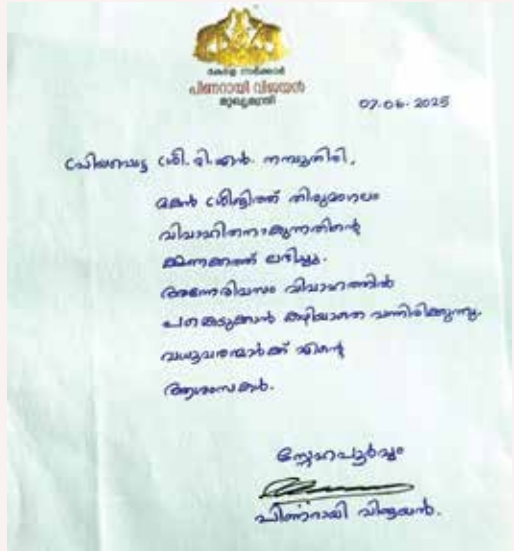 കേരള സർക്കാർ
പിണറായി വിജയൻ
മുഖ്യമന്ത്രി
07.06.2025
പ്രിയപ്പെട്ട ശ്രീ. ടി.എൻ. നമ്പൂതിരി,
മകൻ ശ്രീജിത്ത് തിരുമംഗലം
വിവാഹിതനാകുന്നതിന്റെ
ക്ഷണക്കത്ത് ലഭിച്ചു.
അന്നേദിവസം വിവാഹത്തിൽ
പങ്കെടുക്കാൻ കഴിയാതെ വന്നിരിക്കുന്നു.
വധൂവരന്മാർക്ക് എന്റെ
ആശംസകൾ.
സ്നേഹപൂർവ്വം
പിണറായി വിജയൻ.